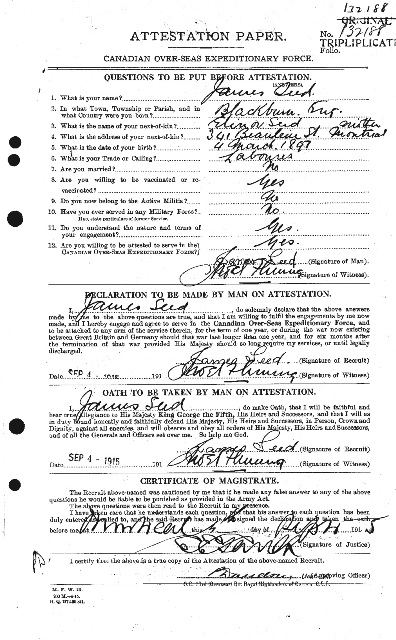 132188
ORIGINAL
ATTESTATION PAPER.
No. 132188
TRIPLICATE
Folio.
CANADIAN OVER-SEAS EXPEDITIONARY FORCE.
QUESTIONS TO BE PUT BEFORE ATTESTATION.
(ANSWERS)
1. What is your name? James Seed
2. In what Town, Township or Parish, and in
what Country were you born? Blackburn. Eng.
3. What is the name of your next-of-kin? Seed
4. What is the address of your next-of-kin? 341 St. Montreal
5. What is the date of your birth? 4 March. 1897
6. What is your Trade or Calling? Labourer
7. Are you married? No
8. Are you willing to be vaccinated or re-
vaccinated? Yes
9. Do you now belong to the Active Militia? No
10. Have you ever served in any Military Force? No.
If so, state particulars of former Service.
11. Do you understand the nature and terms of
your engagement? Yes.
12. Are you willing to be attested to serve in the
CANADIAN OVER-SEAS EXPEDITIONARY FORCE? Yes.
James Seed (Signature of Man).
(Signature of Witness).
DECLARATION TO BE MADE BY MAN ON ATTESTATION.
I, James Seed, do solemnly declare that the above answers
made by me to the above questions are true, and that I am willing to fulfil the engagements by me now
made, and I hereby engage and agree to serve in the Canadian Over-Seas Expeditionary Force, and
to be attached to any arm of the service therein, for the term of one year, or during the war now existing
between Great Britain and Germany should that war last longer than one year, and for six months after
the termination of that war provided His Majesty should so long require my services, or until legally
discharged.
James Seed (Signature of Recruit)
Date SEP 4 1915 (Signature of Witness)
OATH TO BE TAKEN BY MAN ON ATTESTATION.
I, James Seed, do make Oath, that I will be faithful and
bear true Allegiance to His Majesty King George the Fifth, His Heirs and Successors, and that I will as
in duty bound honestly and faithfully defend His Majesty, His Heirs and Successors, in Person, Crown and
Dignity, against all enemies, and will observe and obey all orders of His Majesty, His Heirs and Successors,
and of all the Generals and Officers set over me. So help me God.
James Seed (Signature of Recruit)
Date SEP 4 - 1915 191 (Signature of Witness)
CERTIFICATE OF MAGISTRATE.
The Recruit above-named was cautioned by me that if he made any false answer to any of the above
questions he would be liable to be punished as provided in the Army Act.
The above questions were then read to the Recruit in my presence.
I have taken care that he understands each question, and that his answer to each question has been
duty entered as replied to, and the said Recruit has made and signed the declaration and taken the oath
before me, at Montreal this 4 day of Sept 1915
(Signature of Justice)
I certify that the above is a true copy of the Attestation of the above-named Recruit.
(Approving Officer)
M. F. W. 23.